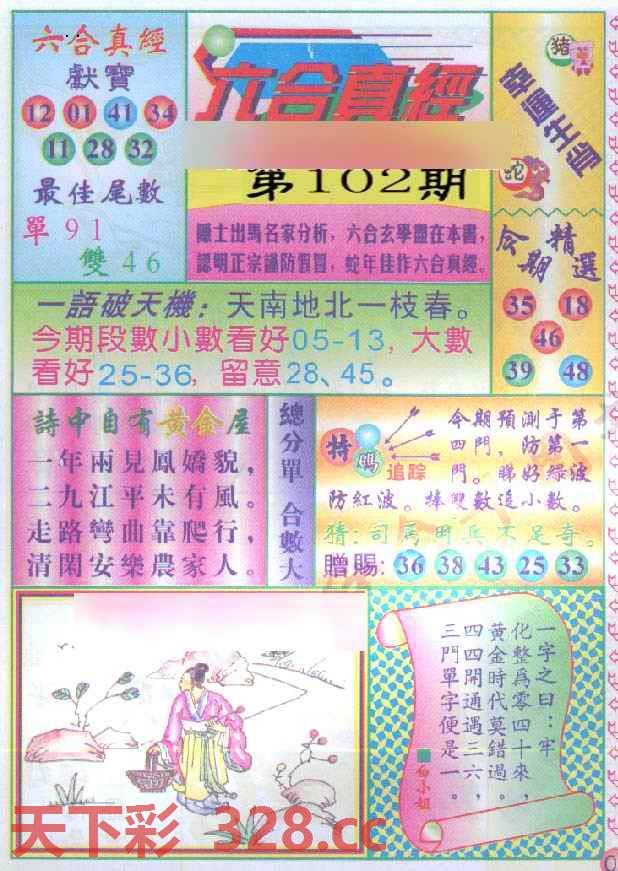 六合真經
獻寶
12 01 41 34
11 28 32
最佳尾數
單 9 1
雙 4 6
六合真經
第102期
隱士出馬名家分析，六合玄學盡在本書，
認明正宗謹防假冒，蛇年佳作六合真經。
猪
蛇
今期精選
35 18
46
39 48
一語破天機：天南地北一枝春。
今期段數小數看好05-13，大數
看好25-36，留意28、45。
詩中自有黃金屋
一年兩見鳳嬌貌，
二九江平未有風。
走路彎曲靠爬行，
清閑安樂農家人。
總分單 合數大
特碼
追踪
今期預測于第
四門，防第一
門。睇好綠波
防紅波。捧雙數追小數。
猜：司馬用兵不足奇。
贈賜：36 38 43 25 33
一字之曰：牢
化整爲零四十來，
黃金時代莫錯過。
四四開通遇三六，
三門單字便是一。
白小姐
天下彩 328.cc